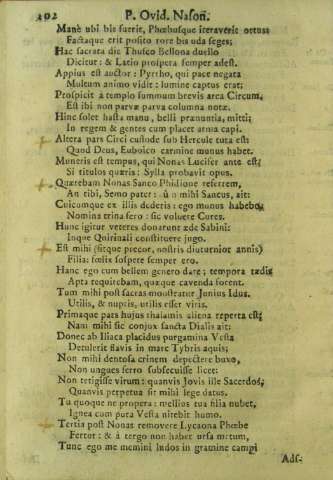 202 P. Ovid. Nason.
Manè ubi bis fuerit, Phœbusque iteraverit ortus
Factaque erit posito rore bis uda seges;
Hac sacrata die Thusco Bellona duello
Dicitur: & Latio prospera semper adest.
Appius est auctor: Pyrrho, qui pace negata
Multum animo vidit: lumine captus erat;
Prospicit à templo summum brevis area Circum,
Est ibi non parvæ parva columna notæ.
Hinc solet hasta manu, belli prænuntia, mitti;
In regem & gentes cum placet arma capi.
Altera pars Circi custode sub Hercule tuta est:
Quod Deus, Euboico carmine munus habet.
Muneris est tempus, qui Nonas Lucifer ante est;
Si titulos quæris: Sylla probavit opus.
Quærebam Nonas Sanco Phidione referrem,
An tibi, Semo pater: ú n mihi Sancus, ait:
Cuicumque ex illis dederis: ego munus habebo,
Nomina trina fero: sic voluere Cures.
Hunc igitur veteres donarunt æde Sabini:
Inque Quirinali constituere jugo.
Est mihi (sitque precor, nostris diuturnior annis)
Filia: felix sospite semper ero.
Hanc ego cum bellem genero dare; tempora tædis
Apta requirebam, quæque cavenda forent.
Tum mihi post sacras monstratur Junius Idus.
Utilis, & nupris, utilis esse viris.
Primaque pars hujus thalamis aliena reperta est:
Nam mihi sic conjux sancta Dialis ait:
Donec ab Iliaca placidus purgamina Vesta
Detulerit flavis in mare Tybris aquis;
Non mihi dentosa crinem depectere buxo,
Non ungues ferro subsecuisse licet:
Non tetigisse virum: quamvis Jovis ille Sacerdos,
Quamvis perpetua sit mihi lege datus.
Tu quoque ne propera: mellius tua filia nubet,
Ignea cum pura Vesta nitebit humo.
Tertia post Nonas removere Lycaona Phœbe
Fertur: & à tergo non habet ursa metum,
Tunc ego me memini ludos in gramine campi
Ads-